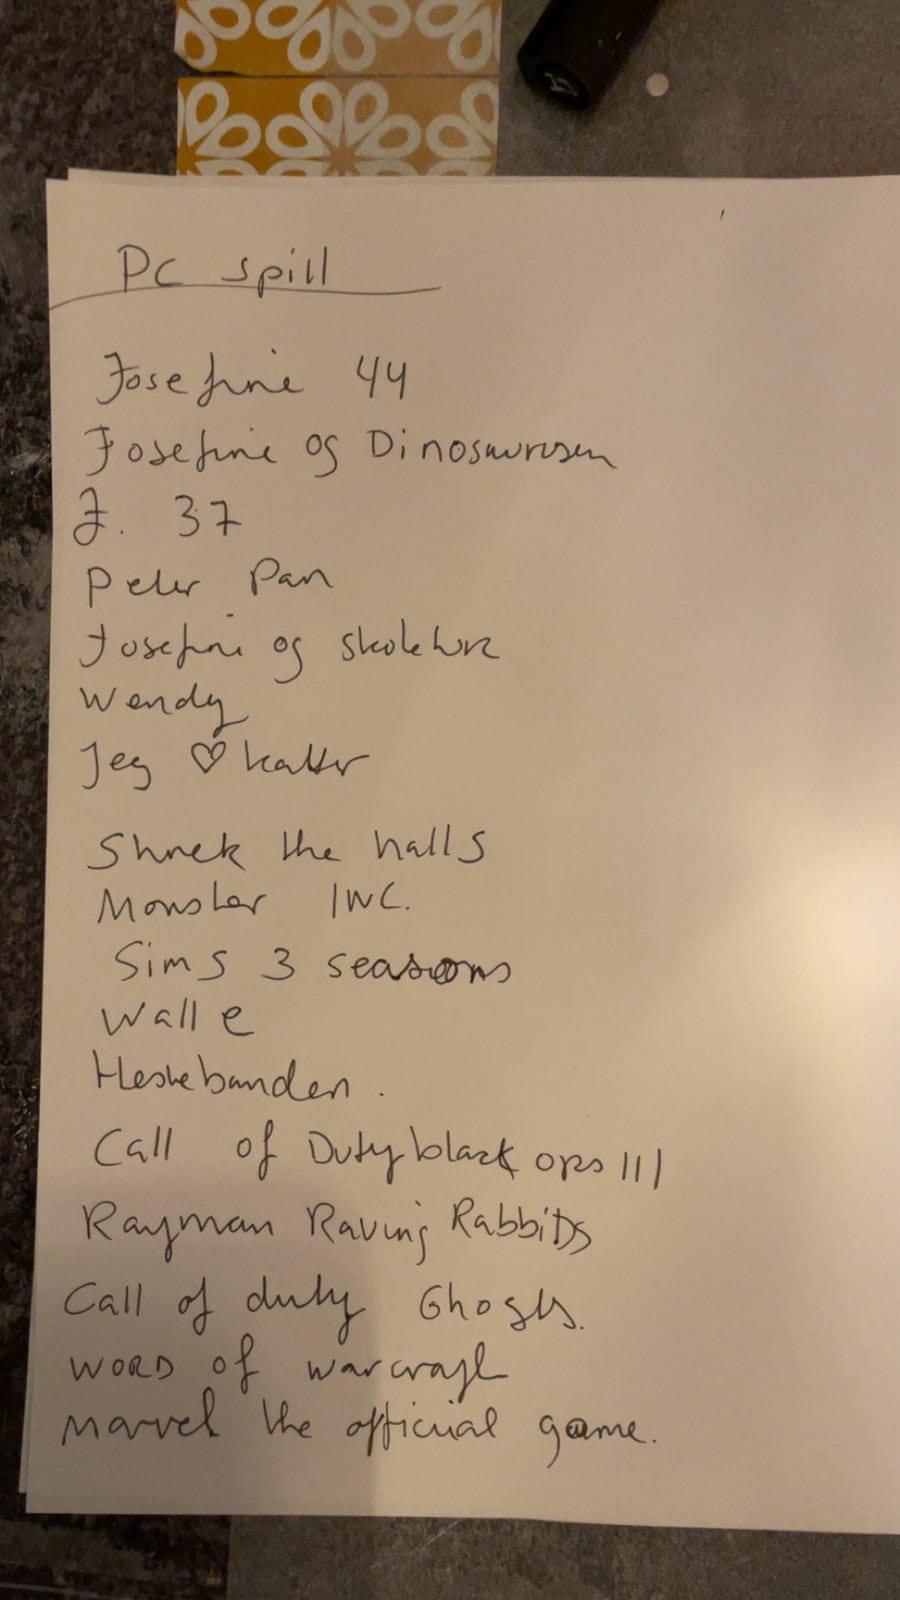 PC spill
Josefine 44
Josefine og Dinosaurusen
J. 37
Peter Pan
Josefine og skolehuse
Wendy
Jeg ♡ katter
Shrek the halls
Monster INC.
Sims 3 seasons
Wall e
Hestebanden.
Call of Duty black ops III
Rayman Raving Rabbits
Call of duty Ghosts.
WORD of warcraft
Marvel the official game.